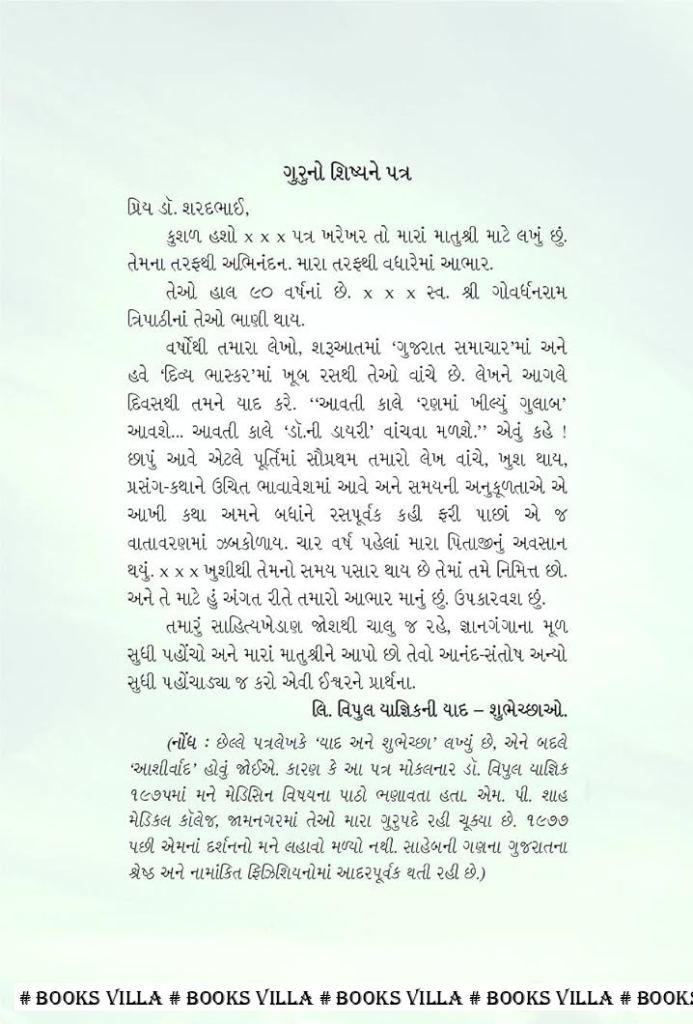 ગુરુનો શિષ્યને પત્ર
પ્રિય ડૉ. શરદભાઈ,
કુશળ હશો x x x પત્ર ખરેખર તો મારાં માતુશ્રી માટે લખું છું.
તેમના તરફથી અભિનંદન. મારા તરફથી વધારેમાં આભાર.
તેઓ હાલ ૯૦ વર્ષનાં છે. x x x સ્વ. શ્રી ગોવર્ધનરામ
ત્રિપાઠીનાં તેઓ ભાણી થાય.
વર્ષોથી તમારા લેખો, શરૂઆતમાં ‘ગુજરાત સમાચાર’માં અને
હવે ‘દિવ્ય ભાસ્કર’માં ખૂબ રસથી તેઓ વાંચે છે. લેખને આગલે
દિવસથી તમને યાદ કરે. ‘‘આવતી કાલે ‘રણમાં ખીલ્યું ગુલાબ’
આવશે... આવતી કાલે ‘ડૉ.ની ડાયરી’ વાંચવા મળશે.’’ એવું કહે !
છાપું આવે એટલે પૂર્તિમાં સૌપ્રથમ તમારો લેખ વાંચે, ખુશ થાય,
પ્રસંગ-કથાને ઉચિત ભાવાવેશમાં આવે અને સમયની અનુકૂળતાએ એ
આખી કથા અમને બધાંને રસપૂર્વક કહી ફરી પાછાં એ જ
વાતાવરણમાં ઝબકોળાય. ચાર વર્ષ પહેલાં મારા પિતાજીનું અવસાન
થયું. x x x ખુશીથી તેમનો સમય પસાર થાય છે તેમાં તમે નિમિત્ત છો.
અને તે માટે હું અંગત રીતે તમારો આભાર માનું છું. ઉપકારવશ છું.
તમારું સાહિત્યખેડાણ જોશથી ચાલુ જ રહે, જ્ઞાનગંગાના મૂળ
સુધી પહોંચો અને મારાં માતુશ્રીને આપો છો તેવો આનંદ-સંતોષ અન્યો
સુધી પહોંચાડ્યા જ કરો એવી ઈશ્વરને પ્રાર્થના.
લિ. વિપુલ યાજ્ઞિકની યાદ – શુભેચ્છાઓ.
(નોંધ : છેલ્લે પત્રલેખકે ‘યાદ અને શુભેચ્છા’ લખ્યું છે, એને બદલે
‘આશીર્વાદ’ હોવું જોઈએ. કારણ કે આ પત્ર મોકલનાર ડૉ. વિપુલ યાજ્ઞિક
૧૯૭૫માં મને મેડિસિન વિષયના પાઠો ભણાવતા હતા. એમ. પી. શાહ
મેડિકલ કૉલેજ, જામનગરમાં તેઓ મારા ગુરુપદે રહી ચૂક્યા છે. ૧૯૭૭
પછી એમનાં દર્શનનો મને લહાવો મળ્યો નથી. સાહેબની ગણના ગુજરાતના
શ્રેષ્ઠ અને નામાંકિત ફિઝિશિયનોમાં આદરપૂર્વક થતી રહી છે.)
# BOOKS VILLA # BOOKS VILLA # BOOKS VILLA # BOOKS VILLA # BOOKS